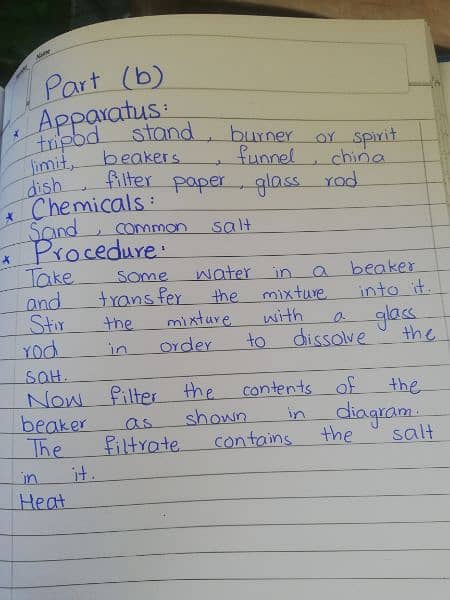 Name
Part (b)
* Apparatus:
tripod stand, burner or spirit
limit, beakers, funnel, china
dish, filter paper, glass rod
* Chemicals:
Sand, common salt
* Procedure:
Take some water in a beaker
and transfer the mixture into it.
Stir the mixture with a glass
rod in order to dissolve the
salt.
Now filter the contents of the
beaker as shown in diagram.
The filtrate contains the salt
in it.
Heat